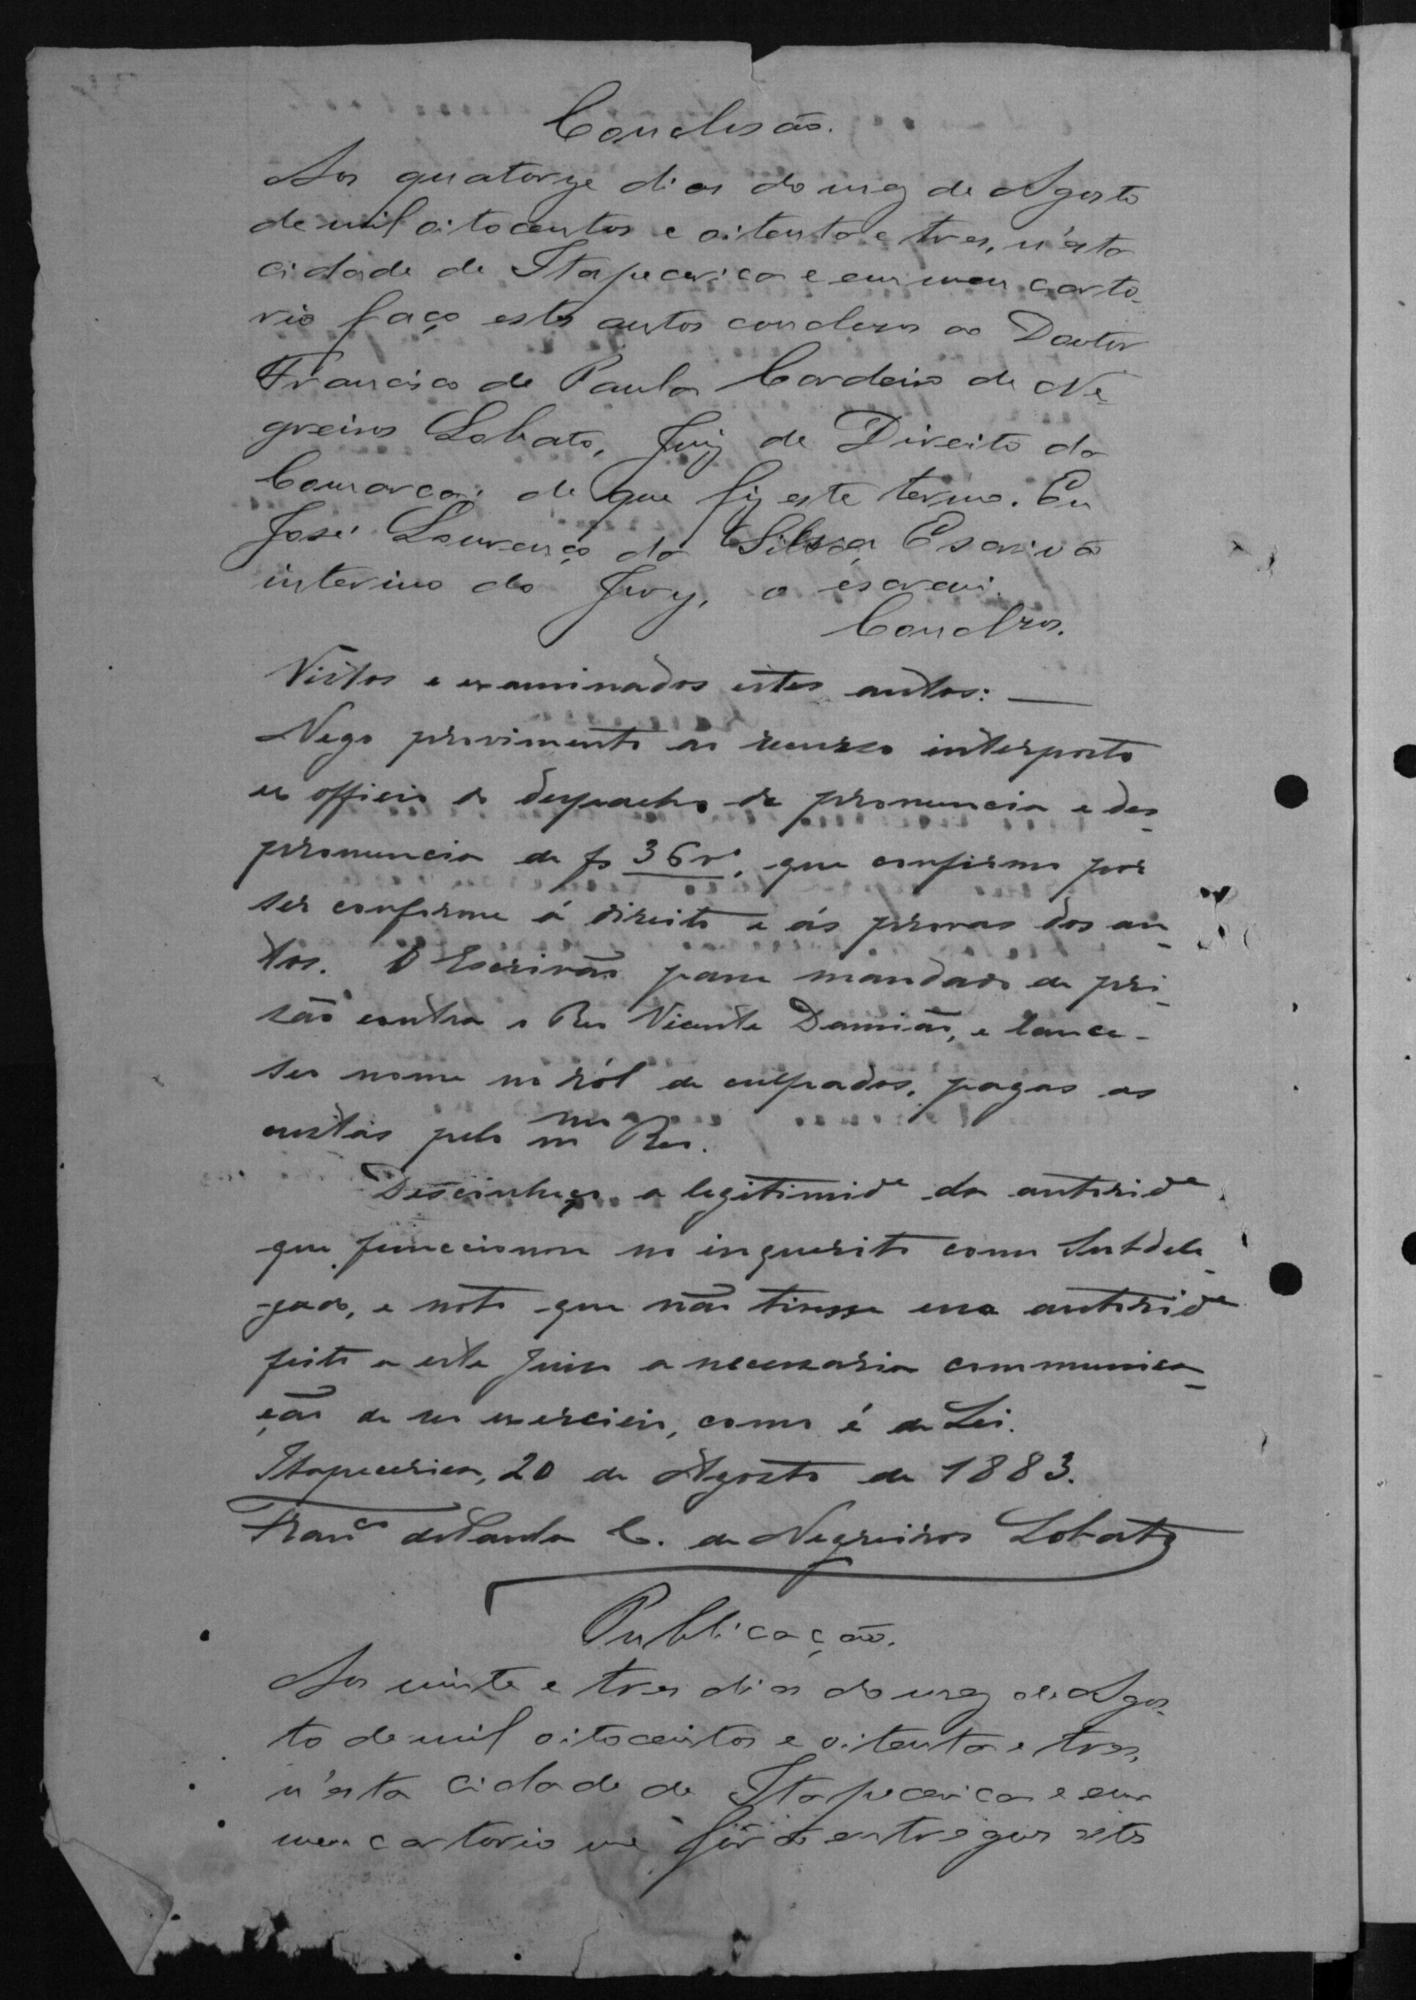 Conclusão.
Aos quatorze dias do mez de Agosto
de mil oitocentos e oitenta e tres, n'esta
cidade de Itapecerica e em meu carto-
rio faço estes autos conclusos ao Doutor
Francisco de Paula Cordeiro de Ne-
greiros Lobato, Juiz de Direito da
Comarca; de que fiz este termo. Eu
José Lourenço da Silva, Escrivão
interino do Jury, o escrevi.
Conclzos.
Vistos e examinados estes autos: —
Nego provimento ao recurso interposto
ex officio do despacho de pronuncia e des-
pronuncia de fs 36 vº, que confirmo por
ser conforme á direito e ás provas dos au-
tos. O Escrivão passe mandado de pri-
são contra o Reo Vicente Damião, e lance-
seu nome no ról de culpados, pagas as
custas pelo mmo Reo.
Desconheço a legitimide da autoride
que funccionou no inquerito como Subdele-
gado, e noto que não tivesse essa autoride
feito a este Juizo a necessaria communica-
ção de seu exercicio, como é de Lei.
Itapecerica, 20 de Agosto de 1883.
Franco de Paula C. de Negreiros Lobato
Publicação.
Aos vinte e tres dias do mez de Agos-
to de mil oitocentos e oitenta e tres,
n'esta cidade de Itapecerica e em
meu cartorio me forão entregues estes